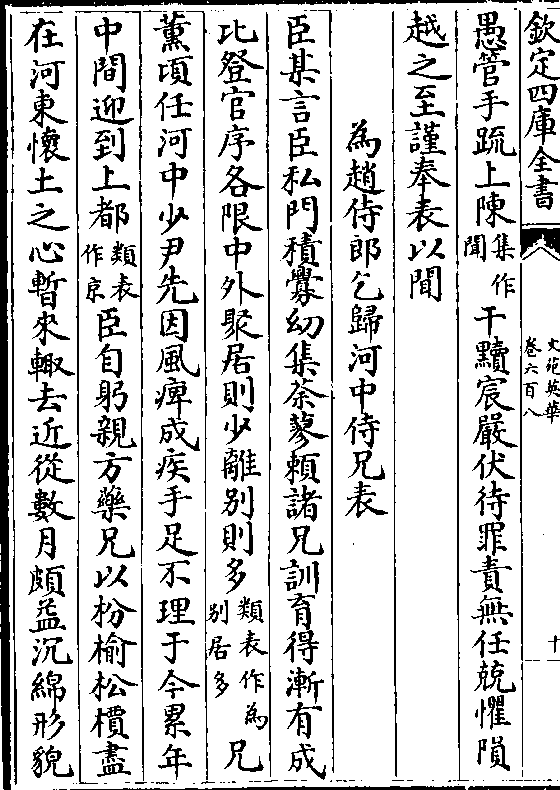 欽定四庫全書
文苑英華
卷六百八
十
愚管手䟽上陳集作聞干黷宸嚴伏待罪責無任兢懼隕
越之至謹奉表以聞
為趙侍郎乞歸河中侍兄表
臣某言臣私門積釁幼集荼蓼頼諸兄訓育得漸有成
比登官序各限中外聚居則少離别則多類表作為别居多兄
薫頃任河中少尹先因風痺成疾手足不理于今累年
中間迎到上都類表作京臣自躬親方藥兄以枌榆松檟盡
在河東懷土之心暫來輙去近從數月頗益沉綿形貌